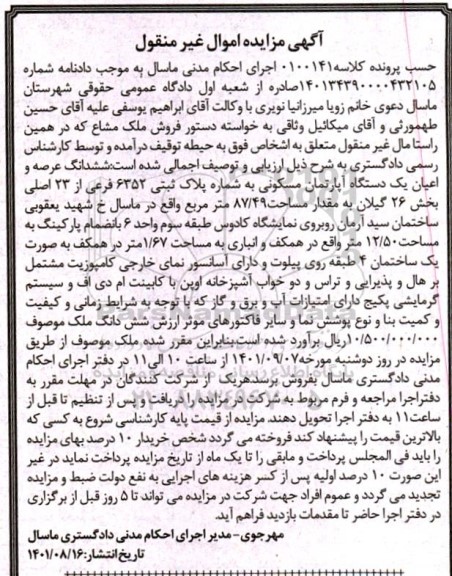 آگهی مزایده اموال غیر منقول
حسب پرونده کلاسه۰۱۰۰۱۴۱ اجرای احکام مدنی ماسال به موجب دادنامه شماره
۱۴۰۱۳۴۳۹۰۰۰۰۴۳۲۱۰۵صادره از شعبه اول دادگاه عمومی حقوقی شهرستان
ماسال دعوی خانم زویا میرزانیا نویری با وکالت آقای ابراهیم یوسفی علیه آقای حسین
طهمورثی و آقای میکائیل وثاقی به خواسته دستور فروش ملک مشاع که در همین
راستا مال غیر منقول متعلق به اشخاص فوق به حیطه توقیف درآمده و توسط کارشناس
رسمی دادگستری به شرح ذیل ارزیابی و توصیف اجمالی شده است:ششدانگ عرصه و
اعیان یک دستگاه آپارتمان مسکونی به شماره پلاک ثبتی ۶۳۵۲ فرعی از ۲۳ اصلی
بخش ۲۶ گیلان به مقدار مساحت۸۷/۴۹ متر مربع واقع در ماسال خ شهید یعقوبی
ساختمان سید آرمان روبروی نمایشگاه کادوس طبقه سوم واحد ۶ بانضمام پارکینگ به
مساحت۱۲/۵۰ متر واقع در همکف و انباری به مساحت ۱/۶۷متر در همکف به صورت
یک ساختمان ۴ طبقه روی پیلوت و دارای آسانسور نمای خارجی کامپوزیت مشتمل
بر هال و پذیرایی و تراس و دو خواب آشپزخانه اوپن با کابینت ام دی اف و سیستم
گرمایشی پکیج دارای امتیازات آب و برق و گاز که با توجه به شرایط زمانی و کیفیت
و کمیت بنا و نوع پوشش نما و سایر فاکتورهای موثر ارزش شش دانگ ملک موصوف
۱۰/۵۰۰/۰۰۰/۰۰۰ریال برآورد شده است.بنابراین مقرر شده ملک موصوف از طریق
مزایده در روز دوشنبه مورخه۱۴۰۱/۰۹/۰۷ از ساعت ۱۰ الی۱۱ در دفتر اجرای احکام
مدنی دادگستری ماسال بفروش برسدهریک از شرکت کنندگان در مهلت مقرر به
دفتراجرا مراجعه و فرم مربوط به شرکت در مزایده را دریافت و پس از تنظیم تا قبل از
ساعت۱۱ به دفتر اجرا تحویل دهند. مزایده از قیمت پایه کارشناسی شروع به کسی که
بالاترین قیمت را پیشنهاد کند فروخته می گردد شخص خریدار ۱۰ درصد بهای مزایده
را باید فی المجلس پرداخت و مابقی را تا یک ماه از تاریخ مزایده پرداخت نماید در غیر
این صورت ۱۰ درصد اولیه پس از کسر هزینه های اجرایی به نفع دولت ضبط و مزایده
تجدید می گردد و عموم افراد جهت شرکت در مزایده می تواند تا ۵ روز قبل از برگزاری
در دفتر اجرا حاضر تا مقدمات بازدید فراهم آید.
مهرجوی- مدیر اجرای احکام مدنی دادگستری ماسال
تاریخ انتشار:۱۴۰۱/۰۸/۱۶